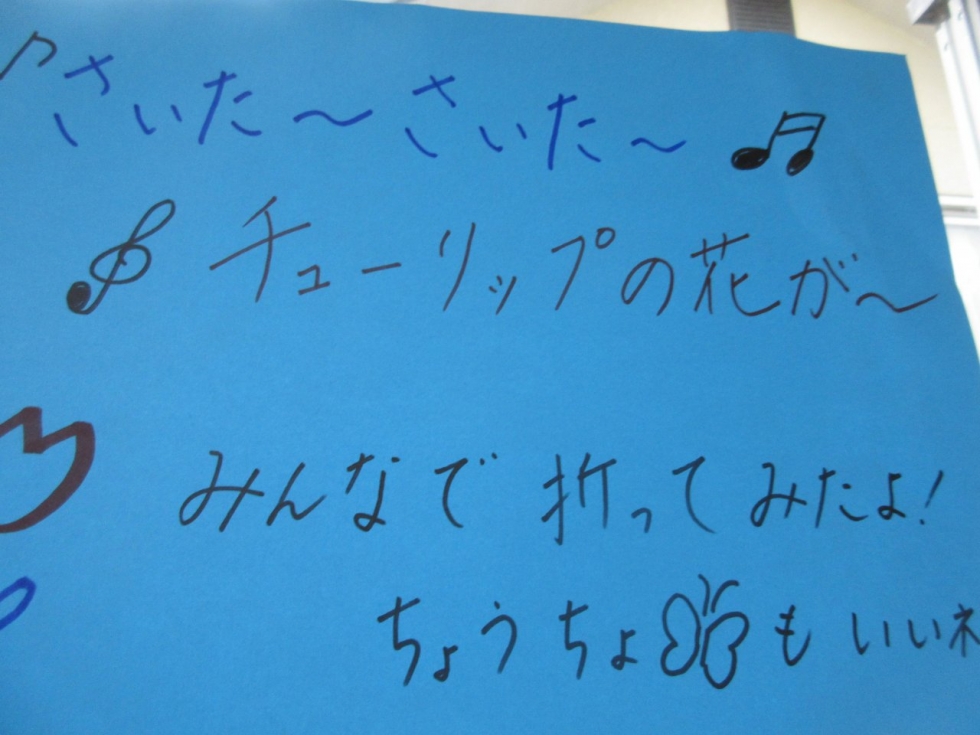 ♪さいた〜さいた〜♫
チューリップの花が〜
みんなで折ってみたよ!
ちょうちょもいいネ